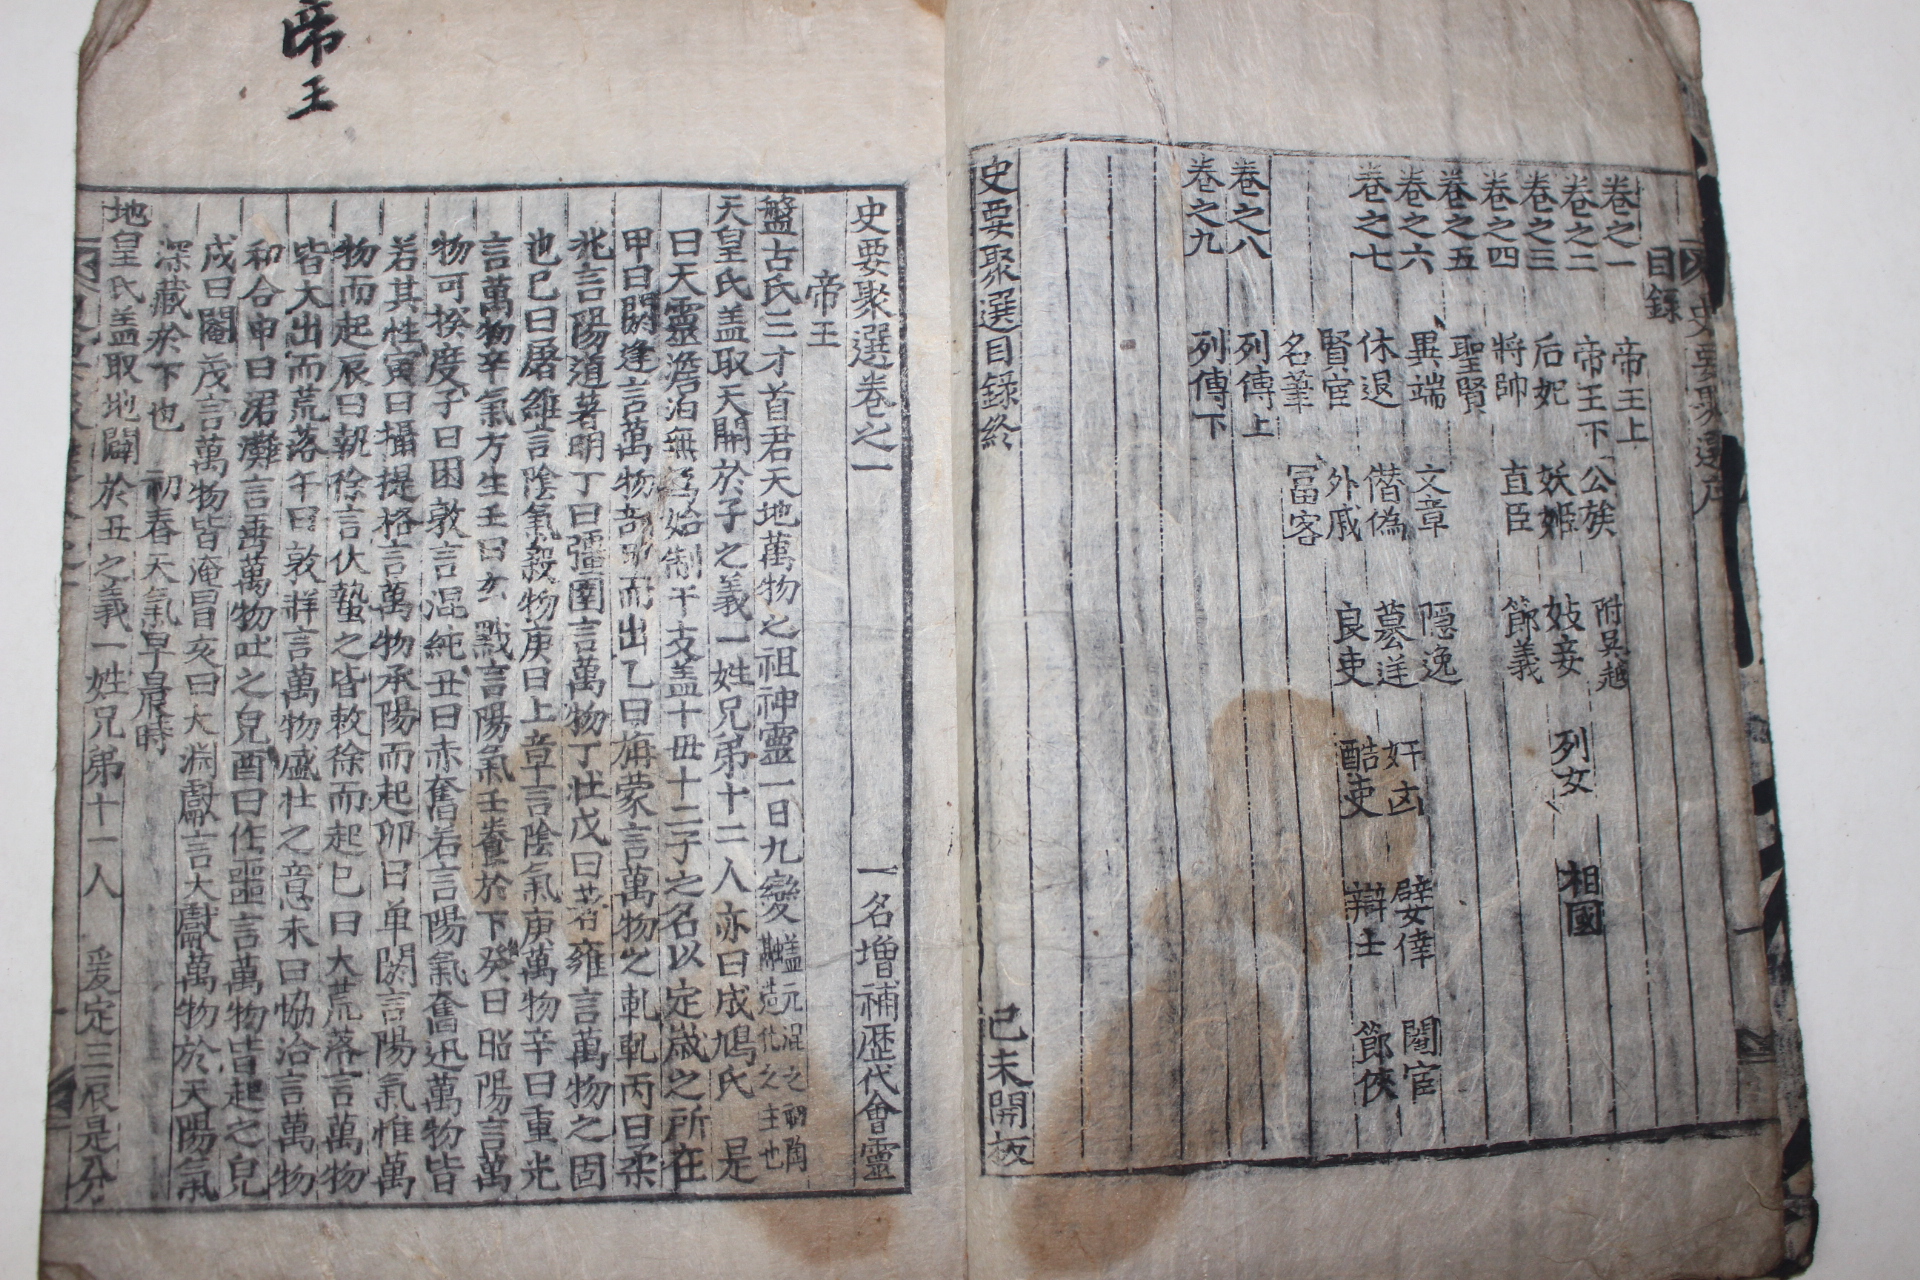 目錄
卷之一 帝王上
卷之二 帝王下 公族 附吳越
卷之三 后妃 妖姬 妓妾 列女 相國
卷之四 將帥 直臣 節義
卷之五 聖賢
卷之六 異端 文章 隱逸
卷之七 休退 僭偽 墓送 奸凶 嬖倖 閹宦
賢宦 外戚 良吏 酷吏 辯士 節俠
名筆 富客
卷之八 列傳上
卷之九 列傳下
史要聚選目錄終 己未開板
帝王
史要聚選卷之一 一名增補歷代會靈
帝王
盤古氏三才首君天地萬物之祖神靈一日九變 盖元混之初陶融造化之主也
天皇氏盖取天開於子之義一姓兄弟十二人亦曰成鳩氏 是
曰天靈澹泊無爲始制干支盖十母十二子之名以定歲之所在
甲曰閼逢言萬物剖甲而出乙曰旃蒙言萬物之軋軋丙曰柔
兆言陽道著明丁曰彊圉言萬物丁壯戊曰著雍言萬物之固
也己曰屠維言陰氣穀物庚曰上章言陰氣庚萬物辛曰重光
言萬物辛氣方生壬曰玄黓言陽氣壬養於下癸曰昭陽言萬
物可揆度子曰困敦言混純丑曰赤奮若言陽氣奮迅萬物皆
若其性寅曰攝提格言萬物承陽而起卯曰单閼言陽氣惟萬
物而起辰曰執徐言伏蟄之皆敕徐而起巳曰大荒落言萬物
皆大出而荒落午曰敦牂言萬物盛壯之意未曰恊洽言萬物
和合申曰涒灘言萬物吐之皃酉曰作噩言萬物皆起之皃
戌曰閹茂言萬物皆淹冒亥曰大淵獻言大獻萬物於天陽氣
深藏於下也 初春天氣早晨時
地皇氏盖取地闢於丑之義一姓兄弟十一人 爰定三辰是分